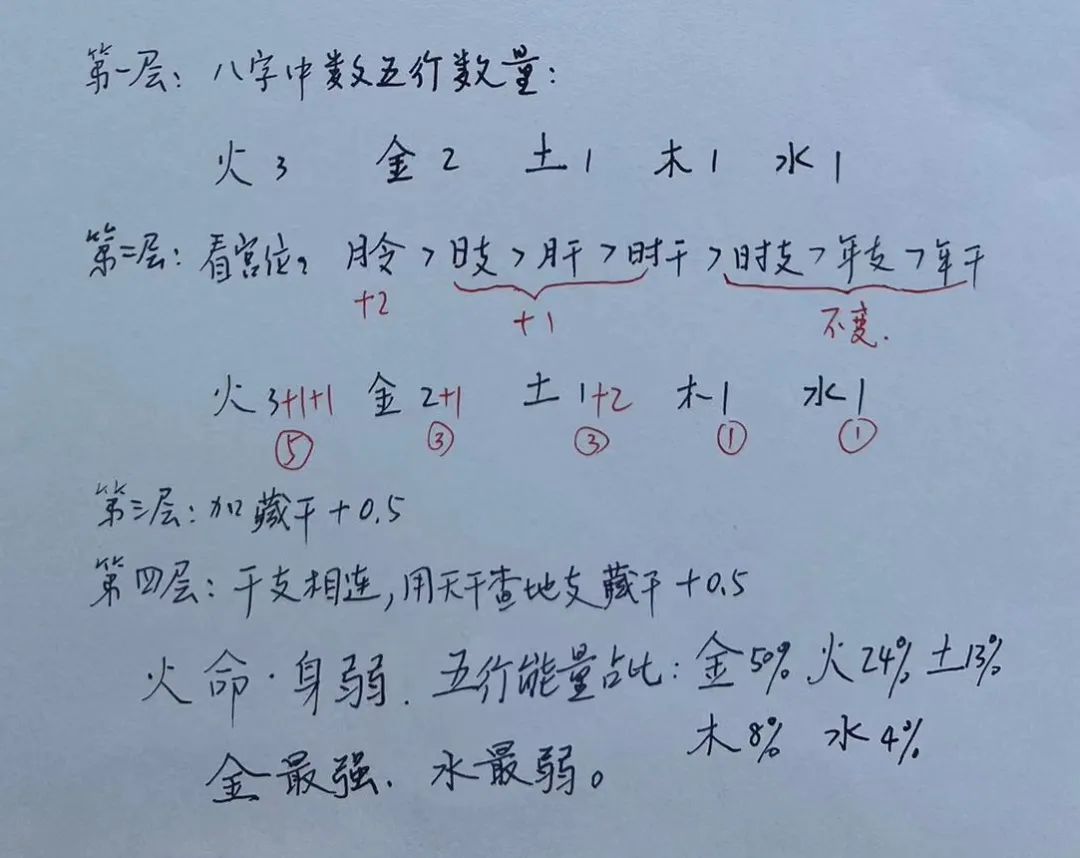 第一层：八字中数五行数量：
火3 金2 土1 木1 水1
第二层：看宫位，月令>日支>月干>时干>时支>年支>年干
+2 +1 不变.
火3+1+1 金2+1 土1+2 木1 水1
⑤ ③ ③ ① ①
第三层：加藏干+0.5
第四层：干支相连，用天干查地支藏干+0.5
火命·身弱. 五行能量占比：金50% 火24% 土13%
木8% 水4%
金最强. 水最弱。